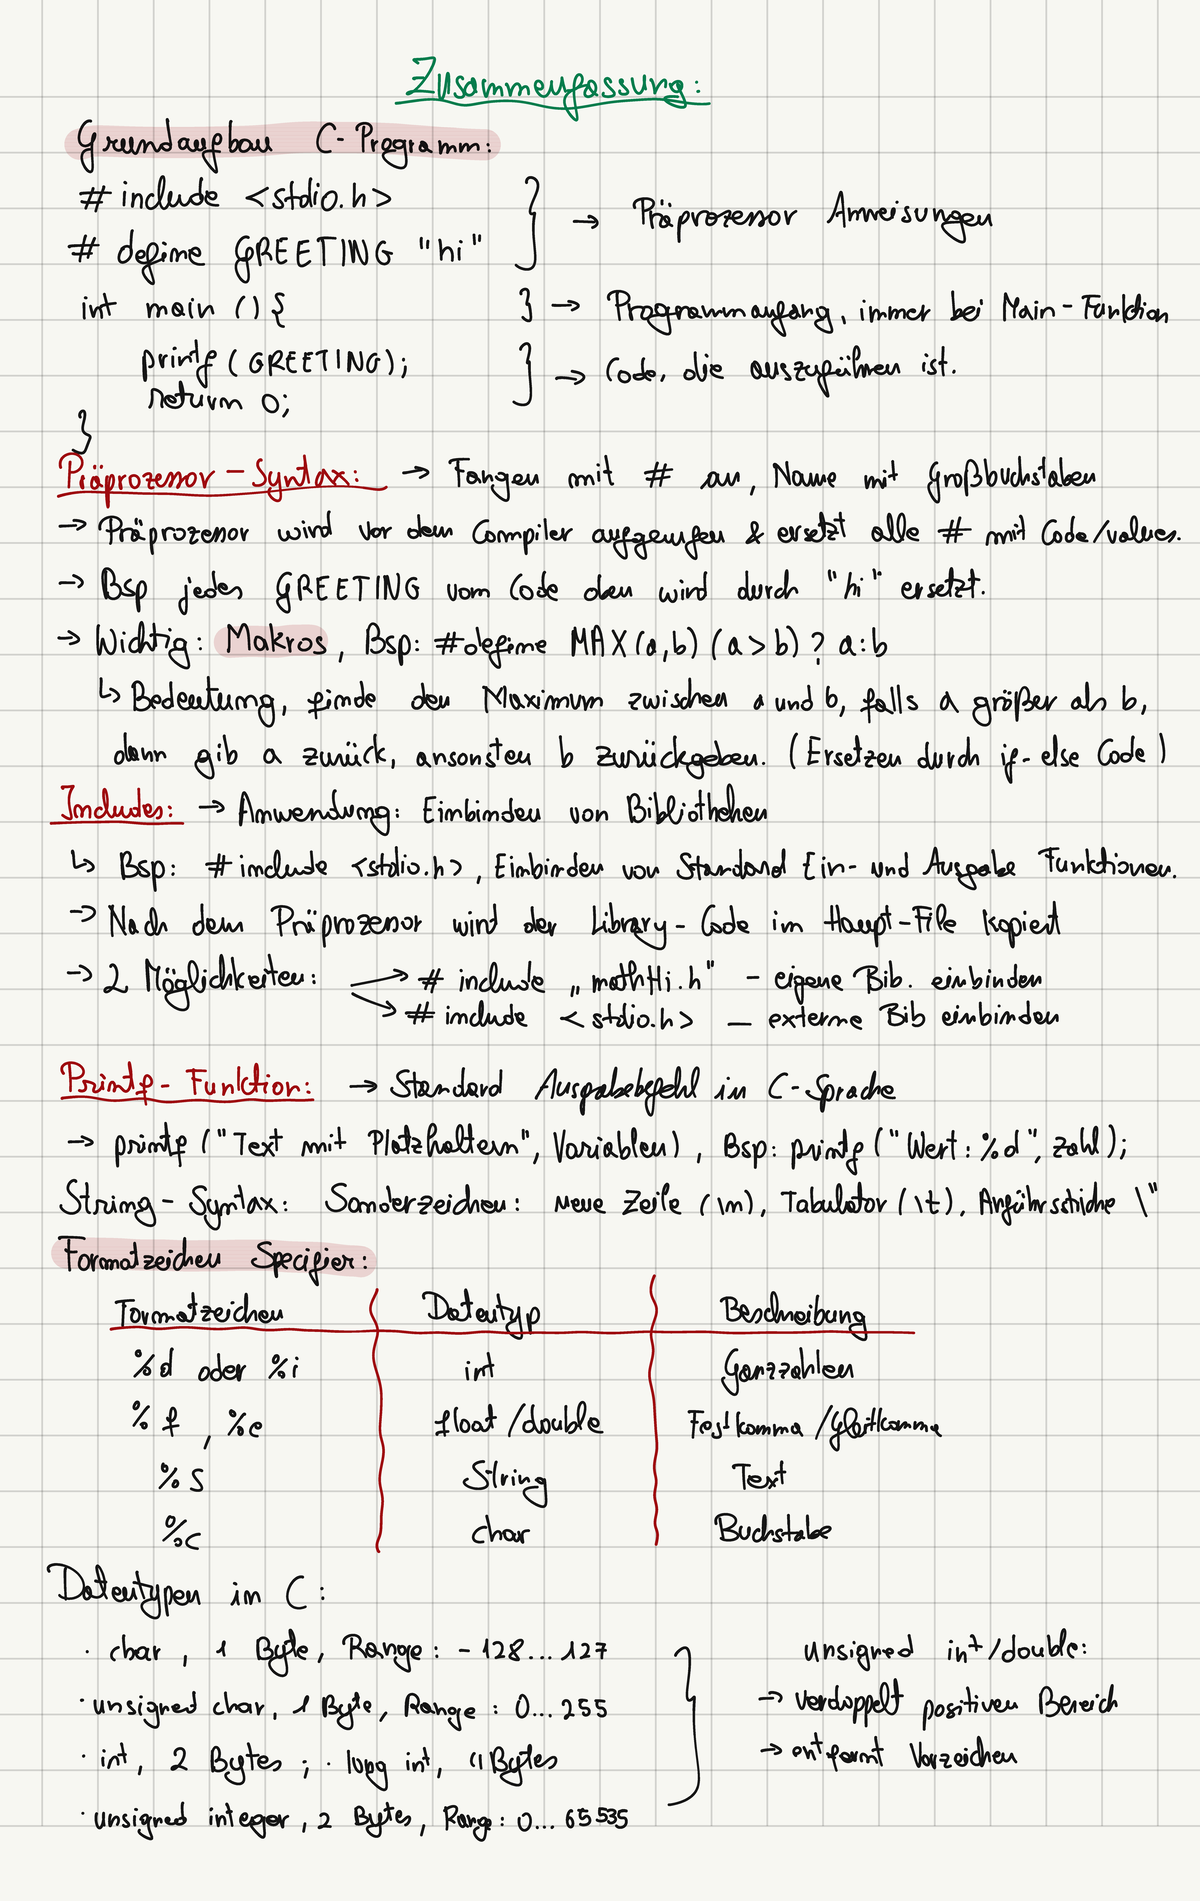 Zusammenfassung:
Grundaufbau C-Programm:
# include <stdio.h>
# define GREETING "hi"
→ Präprozessor Anweisungen
int main () {
→ Programmanfang, immer bei Main-Funktion
printf (GREETING);
return 0;
→ Code, die auszuführen ist.
}
Präprozessor-Syntax: → Fangen mit # an, Name mit Großbuchstaben
→ Präprozessor wird vor dem Compiler aufgerufen & ersetzt alle # mit Code/values.
→ Bsp jedes GREETING vom Code oben wird durch "hi" ersetzt.
→ Wichtig: Makros, Bsp: #define MAX(a,b) (a > b) ? a:b
↳ Bedeutung, finde den Maximum zwischen a und b, falls a größer als b,
dann gib a zurück, ansonsten b zurückgeben. (Ersetzen durch if-else Code)
Includes: → Anwendung: Einbinden von Bibliotheken
↳ Bsp: # include <stdio.h>, Einbinden von Standard Ein- und Ausgabe Funktionen.
→ Nach dem Präprozessor wird der Library-Code im Haupt-File kopiert
→ 2 Möglichkeiten: → # include „mathHi.h" - eigene Bib. einbinden
→ # include <stdio.h> - externe Bib einbinden
Printf-Funktion: → Standard Ausgabebefehl in C-Sprache
→ printf ("Text mit Platzhaltern", Variablen), Bsp: printf ("Wert: %d", zahl);
String-Syntax: Sonderzeichen: neue Zeile (\n), Tabulator (\t), Anführstriche \"
Formatzeichen Specifier:
Formatzeichen Datentyp Beschreibung
%d oder %i int Ganzzahlen
%f, %e float/double Festkomma/Gleitkomma
%s String Text
%c char Buchstabe
Datentypen in C:
· char, 1 Byte, Range: -128...127
· unsigned char, 1 Byte, Range: 0...255
· int, 2 Bytes; · long int, 4 Bytes
· unsigned integer, 2 Bytes, Range: 0...65535
unsigned int/double:
→ verdoppelt positiven Bereich
→ entfernt Vorzeichen